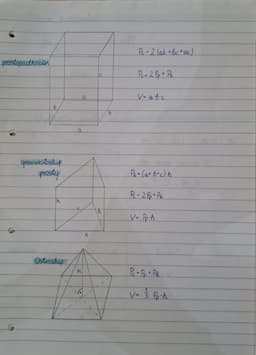 prostopadłościan
Pc = 2(ab + bc + ac)
Pc = 2Pp + Pb
V = a b c
graniastosłup
prosty
Pb = (a + b + c) h
Pc = 2Pp + Pb
V = Pp · h
Ostrosłup
Pc = Pp + Pb
V = 1/3 Pp · h